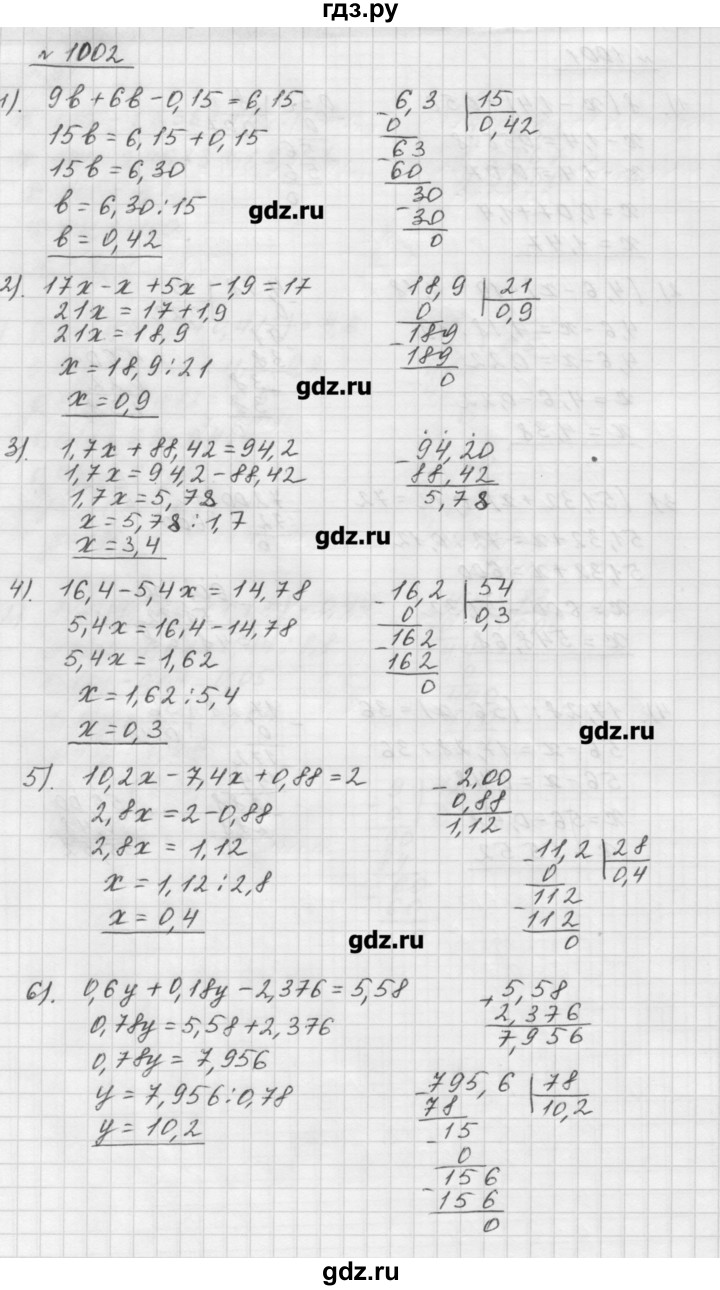 гдз.ру
№ 1002
1). 9в + 6в - 0,15 = 6,15
15в = 6,15 + 0,15
15в = 6,30
в = 6,30 : 15
в = 0,42
6,3 | 15
0 | 0,42
63
60
30
30
0
gdz.ru
2). 17x - x + 5x - 1,9 = 17
21x = 17 + 1,9
21x = 18,9
x = 18,9 : 21
x = 0,9
18,9 | 21
0 | 0,9
- 189
189
0
gdz.ru
3). 1,7x + 88,42 = 94,2
1,7x = 94,2 - 88,42
1,7x = 5,78
x = 5,78 : 1,7
x = 3,4
- 94,20
88,42
5,78
gdz.ru
4). 16,4 - 5,4x = 14,78
5,4x = 16,4 - 14,78
5,4x = 1,62
x = 1,62 : 5,4
x = 0,3
- 16,2 | 54
0 | 0,3
- 162
162
0
gdz.ru
5). 10,2x - 7,4x + 0,88 = 2
2,8x = 2 - 0,88
2,8x = 1,12
x = 1,12 : 2,8
x = 0,4
- 2,00
0,88
1,12
- 11,2 | 28
0 | 0,4
- 112
112
0
gdz.ru
6). 0,6y + 0,18y - 2,376 = 5,58
0,78y = 5,58 + 2,376
0,78y = 7,956
y = 7,956 : 0,78
y = 10,2
+ 5,58
2,376
7,956
- 795,6 | 78
78 | 10,2
- 15
0
- 156
156
0
gdz.ru